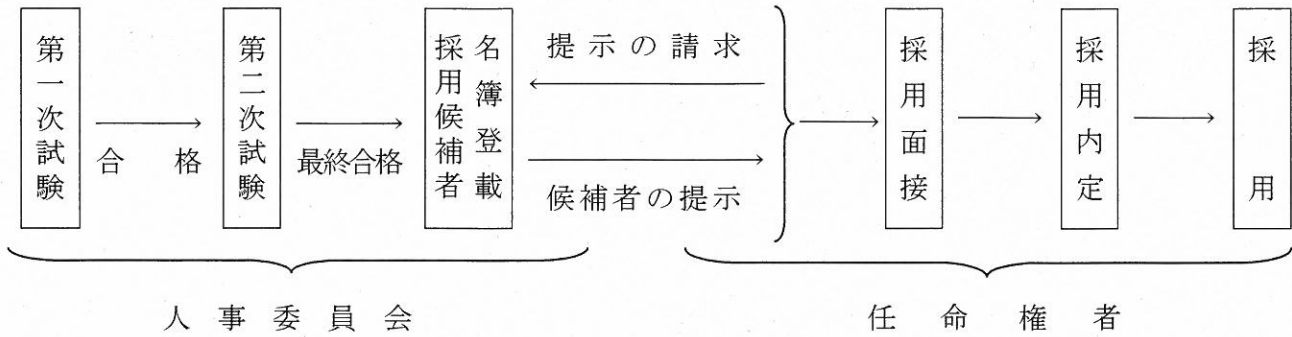 第一次試験
合格
第二次試験
最終合格
採用候補者
名簿登載
提示の請求
候補者の提示
採用面接
採用内定
採用
人事委員会
任命権者